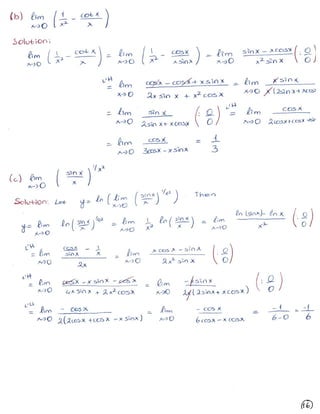 (b) lim x→0 ( 1/x² - cot x / x )
Solution:
lim x→0 ( 1/x² - cot x / x ) = lim x→0 ( 1/x² - cos x / x sin x ) = lim x→0 sin x - x cos x / x² sin x ( : 0/0 )
L'H = lim x→0 cos x - cos x + x sin x / 2x sin x + x² cos x = lim x→0 x sin x / x (2 sin x + x cos x)
= lim x→0 sin x / 2 sin x + x cos x ( : 0/0 ) L'H = lim x→0 cos x / 2 cos x + cos x
= lim x→0 cos x / 3 cos x - x sin x = 1/3
(c) lim x→0 ( sin x / x )^1/x²
Solution: Let y = ln ( lim x→0 ( sin x / x )^1/x² ) Then
y = lim x→0 ln ( sin x / x )^1/x² = lim x→0 1/x² ln ( sin x / x ) = lim x→0 ln (sin x) - ln x / x² ( : 0/0 )
L'H = lim x→0 cos x / sin x - 1/x / 2x = lim x→0 x cos x - sin x / 2x² sin x ( : 0/0 )
L'H = lim x→0 cos x - x sin x - cos x / 4x sin x + 2x² cos x = lim x→0 -x sin x / 2x (2 sin x + x cos x) ( : 0/0 )
L'H = lim x→0 - cos x / 2(2 cos x + cos x - x sin x) = lim x→0 - cos x / 6 cos x - x cos x = -1 / 6-0 = -1/6
(16)